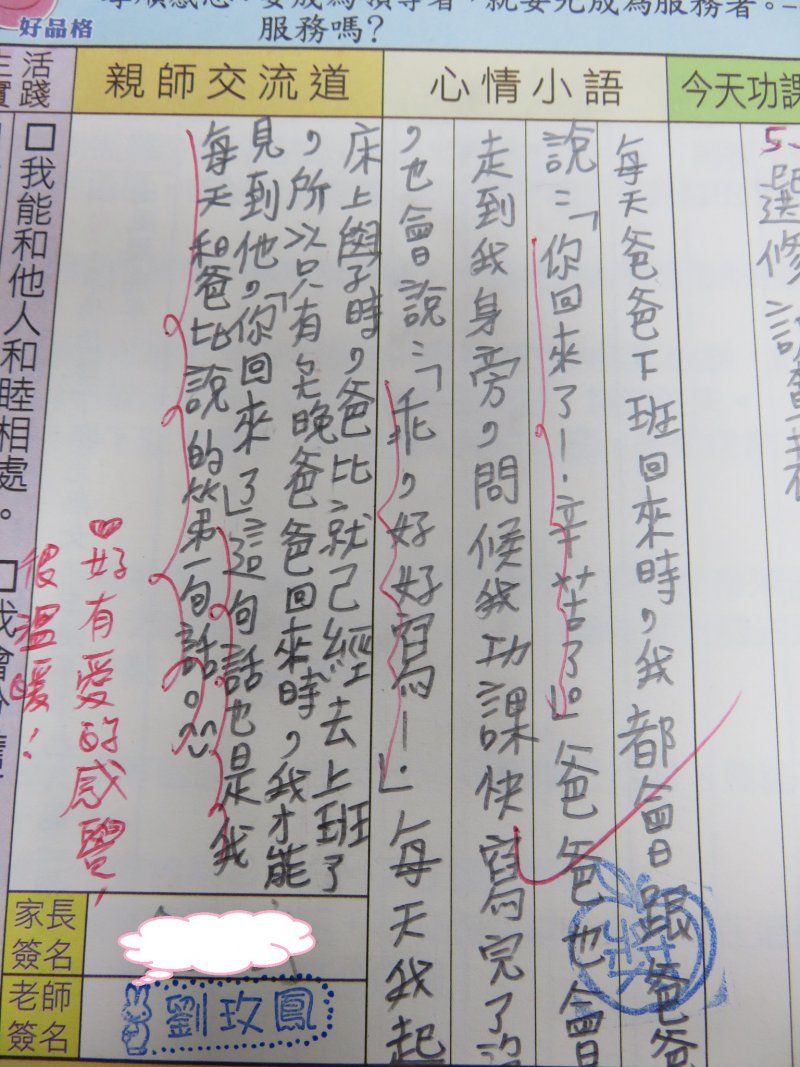 孝順感恩．要成為領導者，就要先成為服務者。
服務嗎？
好品格
生活
實踐
親師交流道
心情小語
今天功課
選修
每天爸爸下班回來時，我都會跟爸爸
說：「你回來了！辛苦了。」爸爸也會
走到我身旁，問候我功課快寫完了沒
，也會說：「乖，好好寫！」每天我起
床上學時，爸比就已經去上班了
，所以只有每晚爸爸回來時，我才能
見到他，「你回來了」這句話也是我
每天和爸比說的第一句話。^^
♥好有愛的感覺！
很溫暖！
□我能和他人和睦相處。
家長
簽名
老師
簽名
劉玫鳳